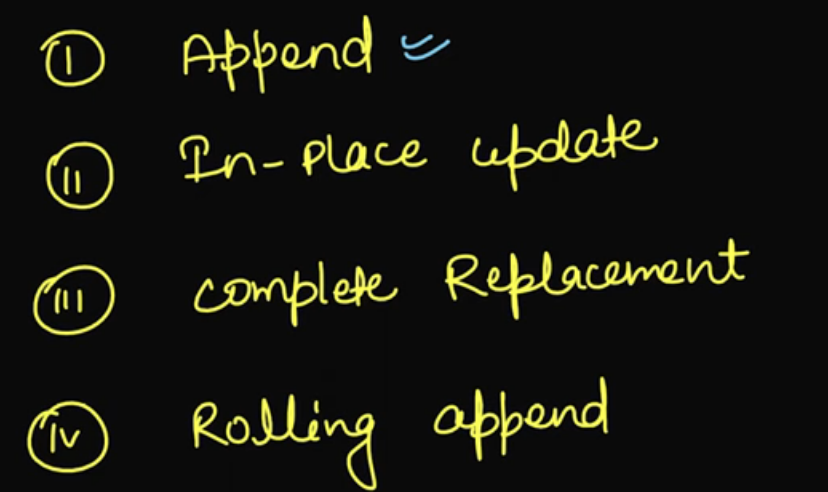 I Append
II In-Place update
III complete Replacement
IV Rolling append